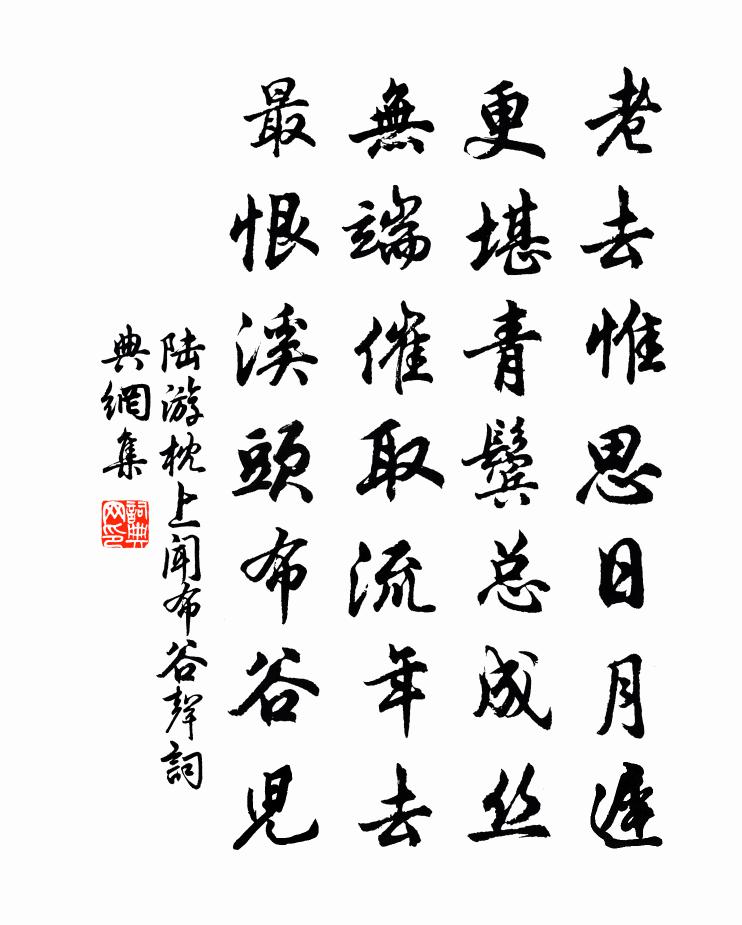 老去惟思日月遲
更堪青鬢总成丝
無端催取流年去
最恨溪頭布谷児
陆游枕上闻布谷聲詞
典網集
詞典网印